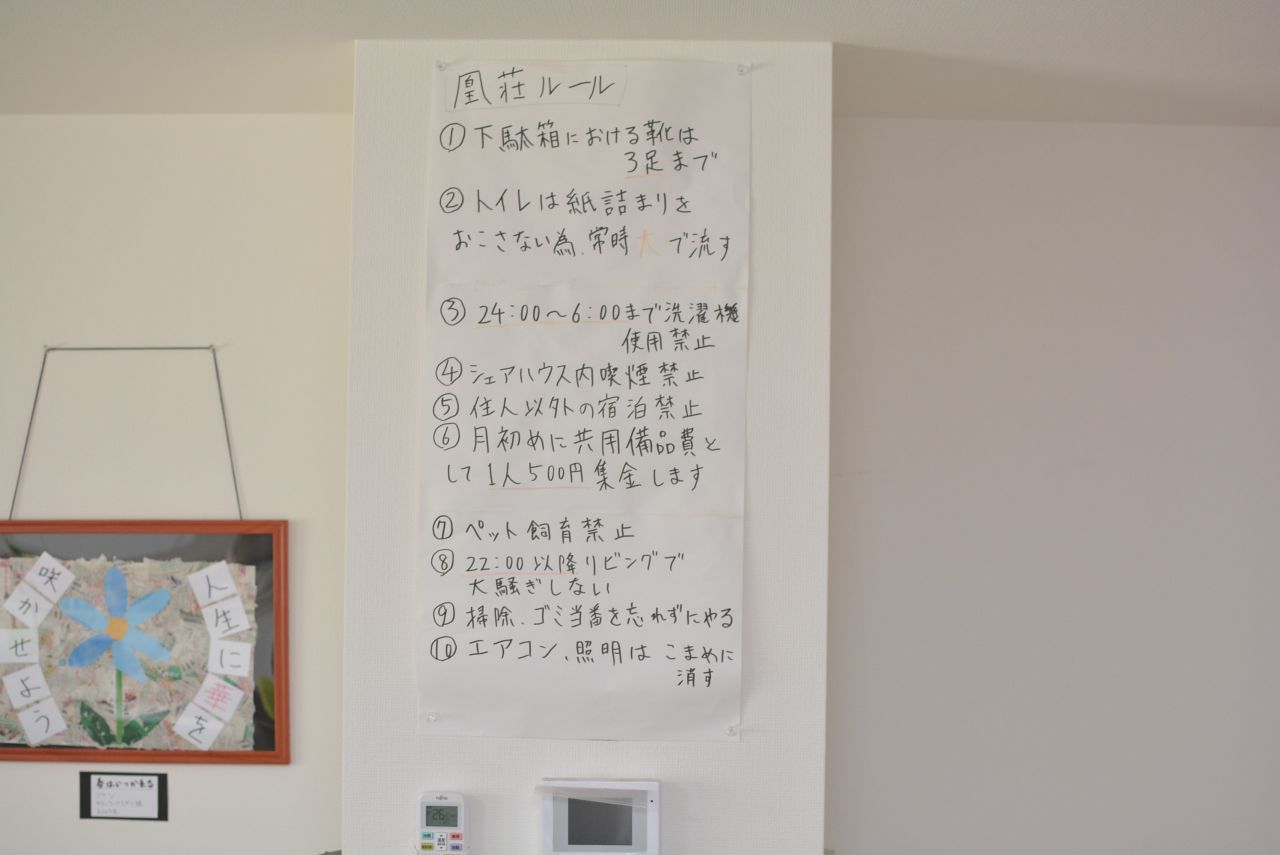 凰荘ルール
① 下駄箱における靴は
3足まで
② トイレは紙詰まりを
おこさない為、常時大で流す
③ 24:00〜6:00まで洗濯機
使用禁止
④ シェアハウス内喫煙禁止
⑤ 住人以外の宿泊禁止
⑥ 月初めに共用備品費と
して1人500円集金します
⑦ ペット飼育禁止
⑧ 22:00以降リビングで
大騒ぎしない
⑨ 掃除、ゴミ当番を忘れずにやる
⑩ エアコン、照明はこまめに
消す
人生に華を
咲かせよう
春はいつか来る
FUJITSU
26